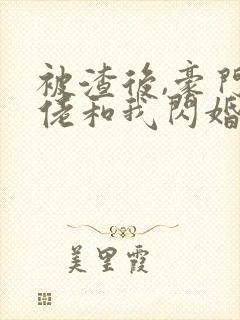 被渣後,豪門
佬和我閃婚
美里霞